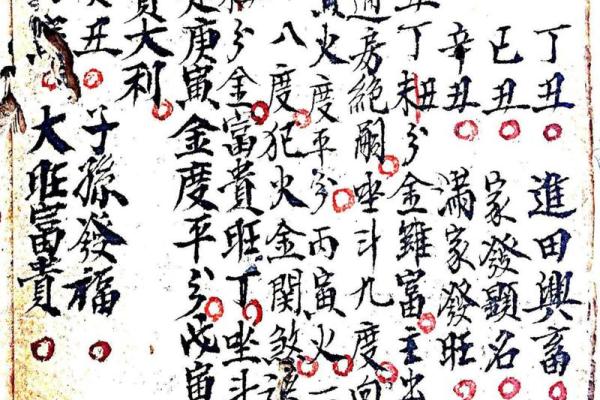 丁丑 進田興畜
已丑 家發顯名
辛丑 滿家發旺
丁未丑分金雖富主出
房絶嗣坐斗九度向
火度平分丙寅火一
八度犯火金関煞
分金富貴旺丁坐斗
庚寅金度平分戊寅
貴大利
丑 子孫發福
大旺富貴